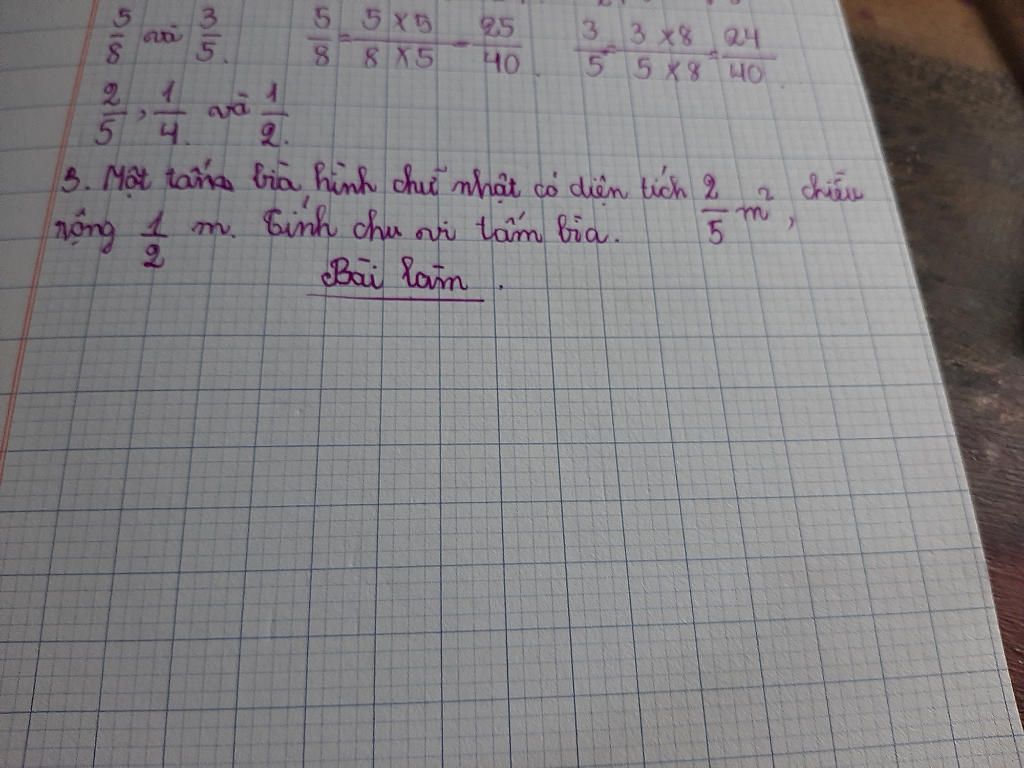 5/8 và 3/5. 5/8 = 5 x 5 / 8 x 5 = 25/40. 3/5 = 3 x 8 / 5 x 8 = 24/40.
2/5, 1/4. và 1/2.
3. Một tấm bìa hình chữ nhật có diện tích 2/5 m², chiều
rộng 1/2 m. Tính chu vi tấm bìa.
Bài làm.